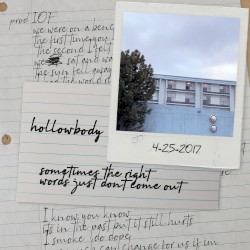 proof IOF
we were on a bench
the first time you
the second I felt
we sat and wa
the sun fell away
hollowbody
4-25-2017
sometimes the right
words just don't come out
I know you know
it's in the past but it still hurts
I smoke, do dope
change for us if im